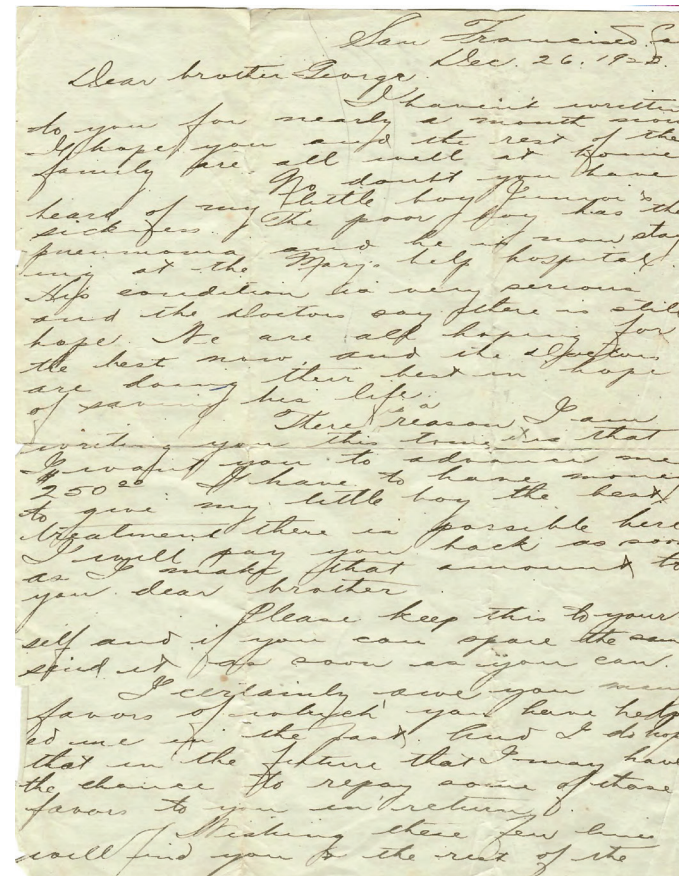 San Francisco Ca
Dec. 26, 192
Dear brother George
I haven't written
to you for nearly a month now
I hope you and the rest of the
family are all well at home
No doubt you have
heard of my little boy Junior's
sickness. The poor boy has the
pneumonia and he is now stay
ing at the Mary's help hospital.
His condition is very serious
and the doctors say there is still
hope. We are all hoping for
the best now, and the doctors
are doing their best in hope
of saving his life.
There reason I am
writing you this time is that
I want you to advance me
$250.00 I have to have money
to give my little boy the best
treatment there is possible here
I will pay you back as soon
as I make that amount to
you dear brother.
Please keep this to your
self and if you can spare the sum
send it as soon as you can.
I certainly owe you many
favors of which you have help
ed me in the past, And I do hope
that in the future that I may have
the chance to repay some of those
favors to you in return.
Wishing these few lines
will find you & the rest of the